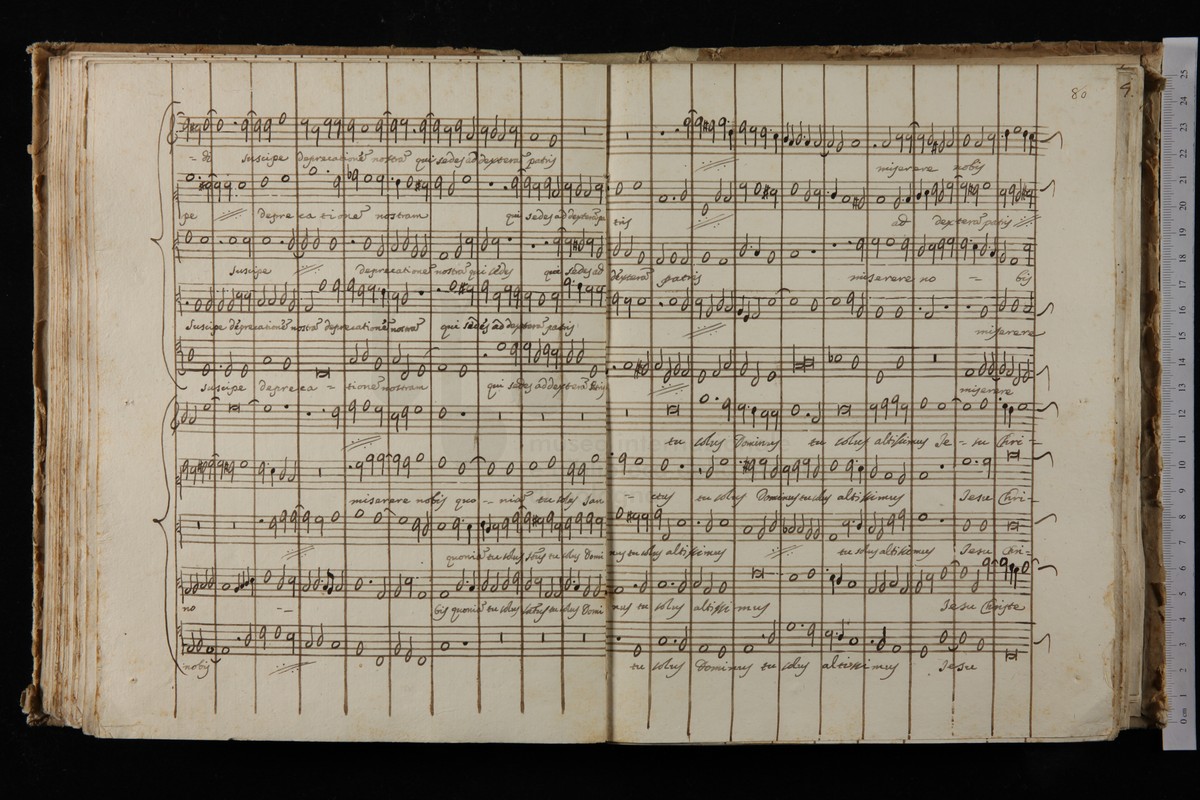 80 9.
- di suscipe deprecationē nostrā qui sedes ad dexterā patris miserere nobis
pe deprecationē nostram qui sedes ad dexterā pa tris ad dexterā patris
suscipe deprecationē nostrā qui sedes qui sedes ad dexterā patris miserere no - bis
suscipe deprecationē nostrā deprecationē nostrā qui sedes ad dexterā patris miserere
suscipe depreca - tionē nostram qui sedes ad dexterā patris miserere
tu solus Dominus tu solus altissimus Je - su Chri -
miserere nobis quo - niā tu solus san - ctus tu solus Dominus tu solus altissimus Jesu Chri -
quoniā tu solus sctus tu solus Domi nus tu solus altissimus tu solus altissimus Jesu Chri -
no - - bis quoniā tu solus sctus tu solus Domi nus tu solus altissimus Jesu Christe
nobis tu solus Dominus tu solus altissimus Jesu